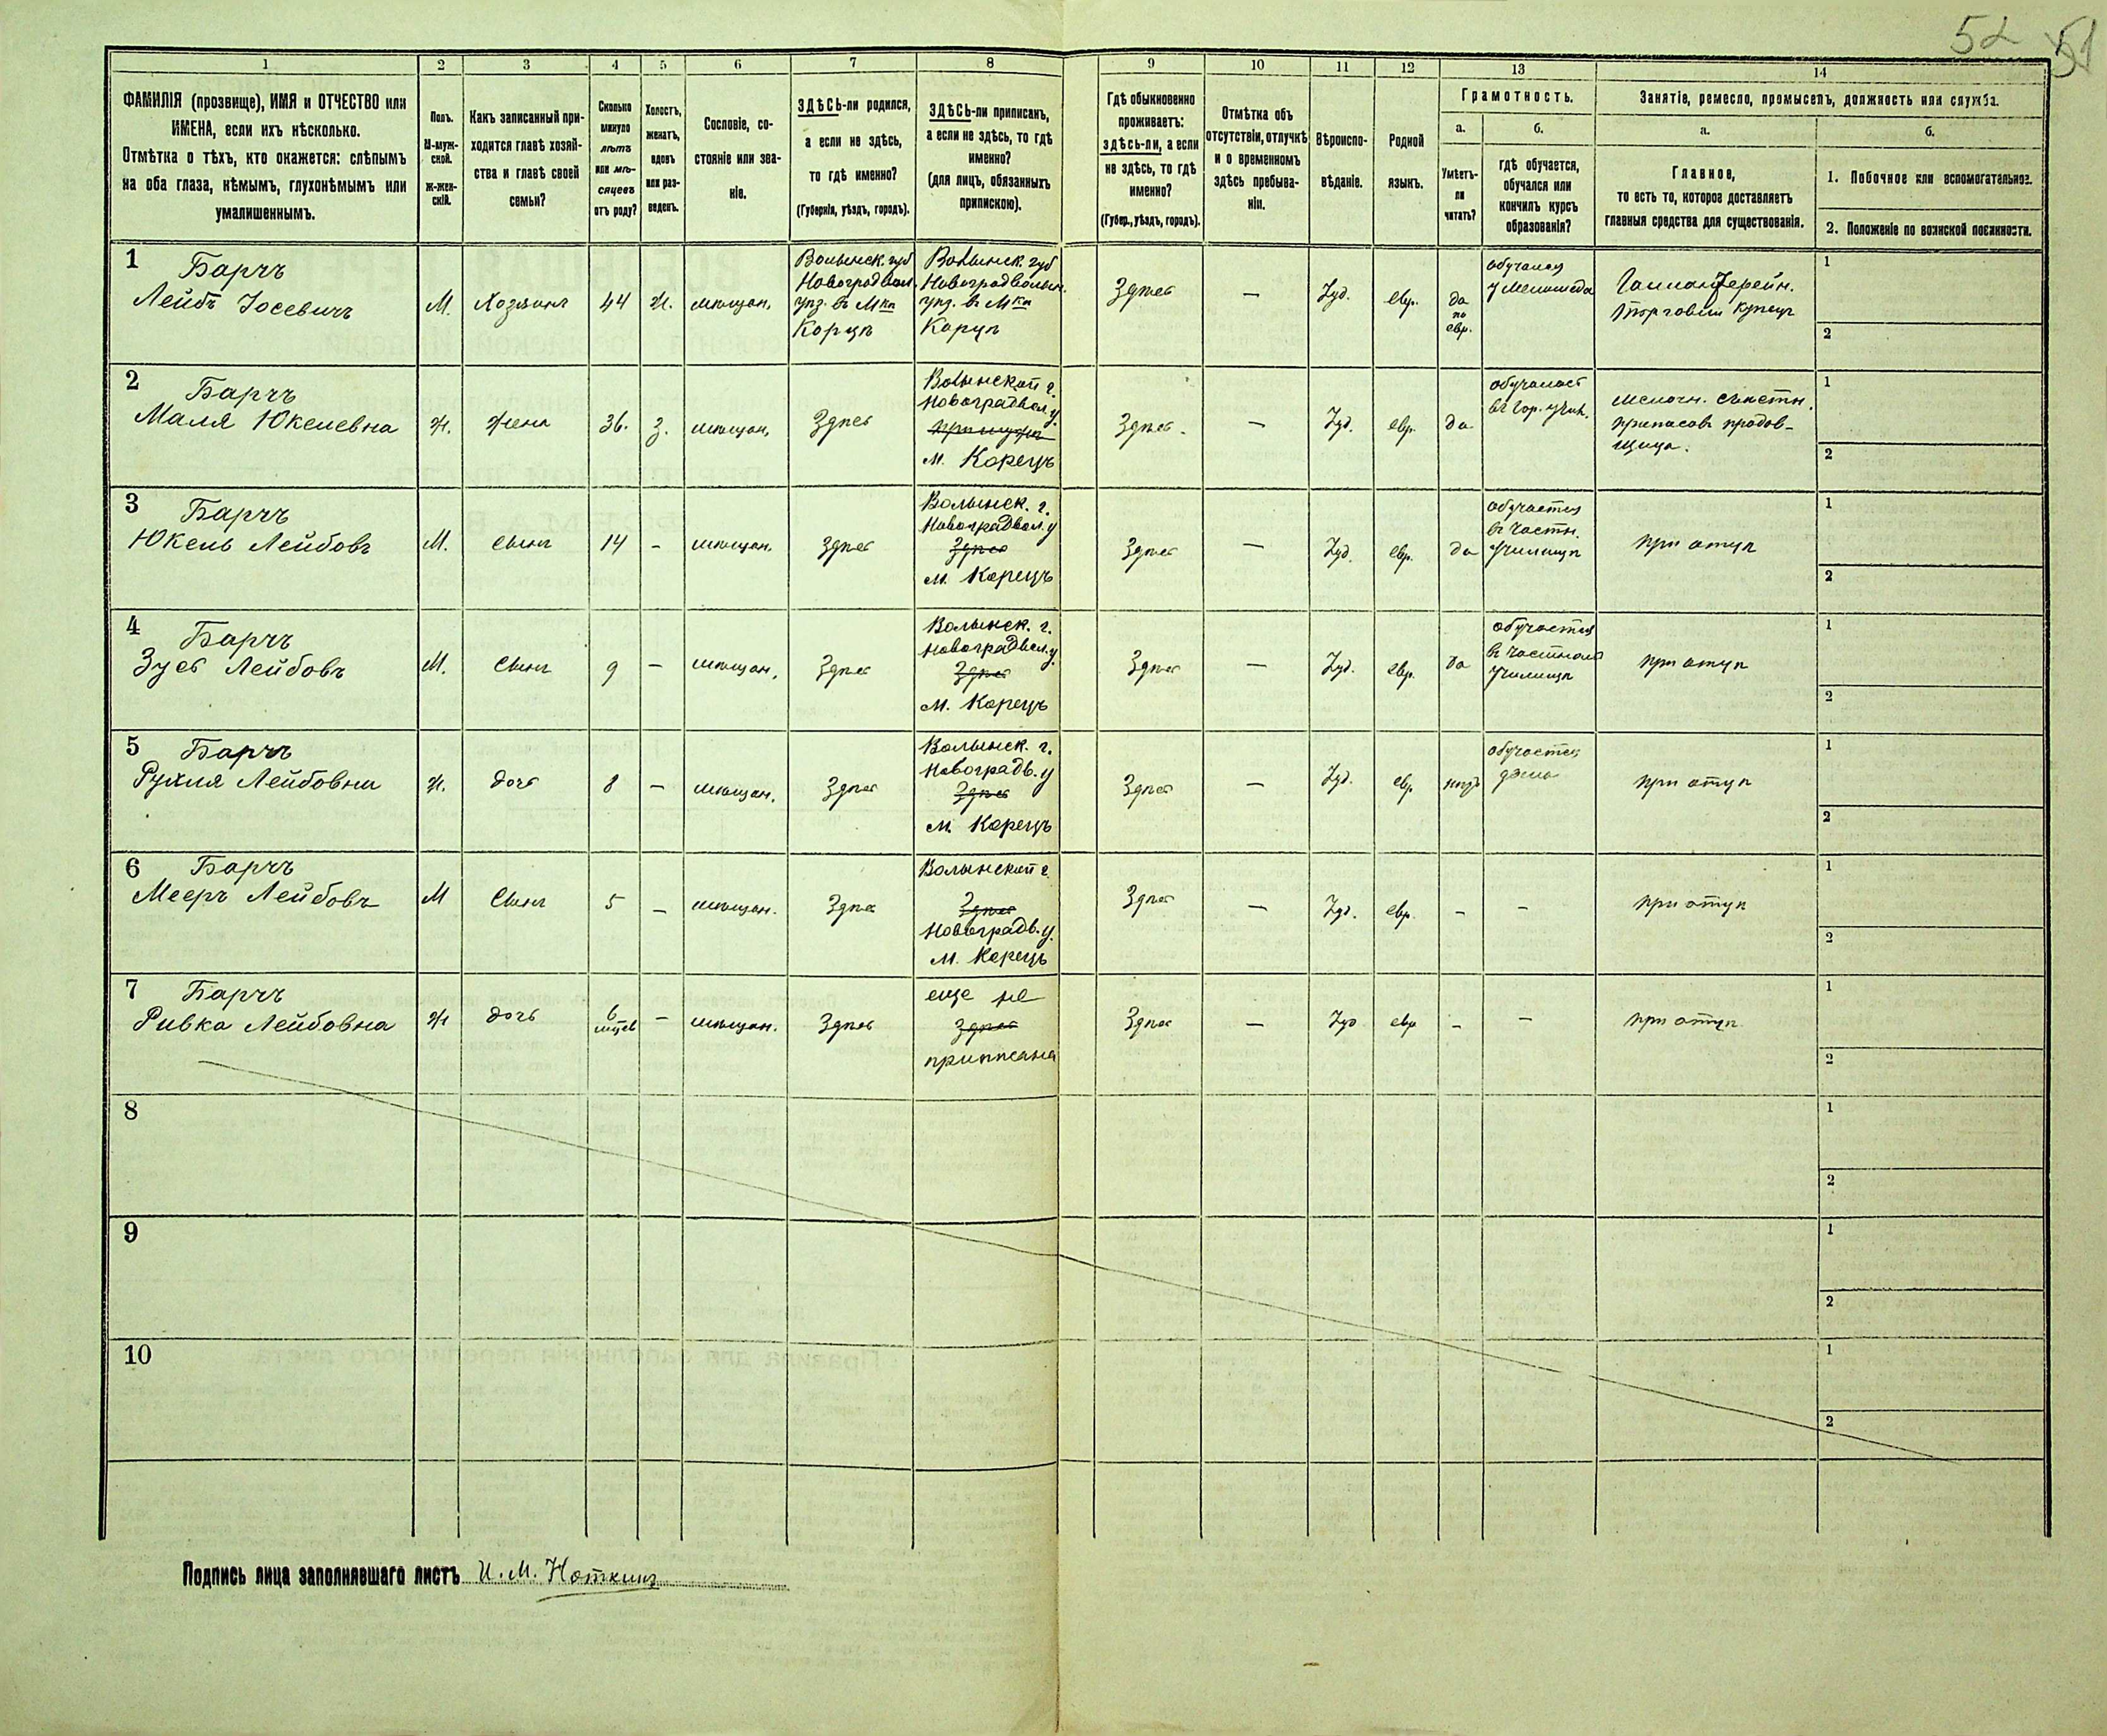 52 51
1 2 3 4 5 6 7 8 9 10 11 12 13 14
ФАМИЛІЯ (прозвище), ИМЯ и ОТЧЕСТВО или
ИМЕНА, если ихъ нѣсколько.
Отмѣтка о тѣхъ, кто окажется: слѣпымъ
на оба глаза, нѣмымъ, глухонѣмымъ или
умалишеннымъ.
Полъ.
М-муж-
ской.
ж-жен-
скій.
Какъ записанный при-
ходится главѣ хозяй-
ства и главѣ своей
семьи?
Сколько
минуло
лѣтъ
или мѣ-
сяцевъ
отъ роду?
Холостъ,
женатъ,
вдовъ
или раз-
веденъ.
Сословіе, со-
стояніе или зва-
ніе.
ЗДѢСЬ-ли родился,
а если не здѣсь,
то гдѣ именно?
(Губернія, уѣздъ, городъ).
ЗДѢСЬ-ли приписанъ,
а если не здѣсь, то гдѣ
именно?
(для лицъ, обязанныхъ
припискою).
Гдѣ обыкновенно
проживаетъ:
здѣсь-ли, а если
не здѣсь, то гдѣ
именно?
(Губер., уѣздъ, городъ).
Отмѣтка объ
отсутствіи, отлучкѣ
и о временномъ
здѣсь пребыва-
ніи.
Вѣроиспо-
вѣданіе.
Родной
языкъ.
Грамотность.
а.
Умѣетъ-
ли
читать?
б.
гдѣ обучается,
обучался или
кончилъ курсъ
образованія?
Занятіе, ремесло, промыселъ, должность или служба.
а.
Главное,
то есть то, которое доставляетъ
главныя средства для существованія.
б.
1. Побочное или вспомогательное.
2. Положеніе по воинской повинности.
1 Барчъ
Лейбъ Іосевичъ
М.
Хозяинъ
44
ж.
мѣщан.
Волынск. губ
Новоградвол.
уѣз. въ Мкѣ
Корцѣ
Волынск. губ
Новоградволын.
уѣз. въ Мкѣ
Корцѣ
Здѣсь
—
Іуд.
евр.
да
по
евр.
обучался
у меламеда
Галлантерейн.
торговли купецъ
1
2
2 Барчъ
Маля Юкелевна
ж.
жена
36.
з.
мѣщан.
Здѣсь
Волынской г.
Новоградвол. у
м. Корецъ
Здѣсь.
—
Іуд.
евр.
да
обучалась
въ гор. учил.
мелочн. съѣстн.
припасовъ продав-
щица.
1
2
3 Барчъ
Юкель Лейбовъ
М.
Сынъ
14
-
мѣщан.
Здѣсь
Волынск. г.
Новоградвол. у
Здѣсь
м. Корецъ
Здѣсь
—
Іуд.
евр.
да
обучается
въ частн.
училищѣ
при отцѣ
1
2
4 Барчъ
Зусь Лейбовъ
М.
Сынъ
9
—
мѣщан.
Здѣсь
Волынск. г.
Новоградвол. у.
Здѣсь
м. Корецъ
Здѣсь
—
Іуд.
евр.
да
обучается
въ частномъ
училищѣ
при отцѣ
1
2
5 Барчъ
Рухля Лейбовна
ж.
дочь
8
—
мѣщан.
Здѣсь
Волынск. г.
Новоградв. у
Здѣсь
м. Корецъ
Здѣсь
—
Іуд.
евр
нѣтъ
обучается
дома
при отцѣ
1
2
6 Барчъ
Мееръ Лейбовъ
М
Сынъ
5
—
мѣщан.
Здѣсь
Волынской г.
Здѣсь
Новоградв. у.
м. Корецъ
Здѣсь
—
Іуд.
евр.
-
-
при отцѣ
1
2
7 Барчъ
Ривка Лейбовна
ж
дочь
6
мѣсев
—
мѣщан.
Здѣсь
еще не
Здѣсь
приписана
Здѣсь
—
Іуд
евр
-
-
при отцѣ
1
2
8
1
2
9
1
2
10
1
2
Подпись лица заполнявшаго листъ И. М.Ноткинъ